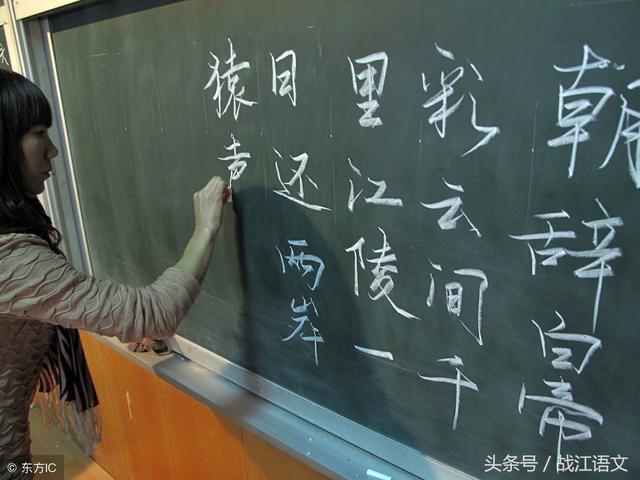 朝辞白帝
彩云间千
里江陵一
日还两岸
猿声
© 东方IC
头条号／战江语文